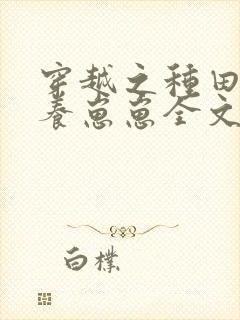 穿越之種田
養崽崽全文
白樸